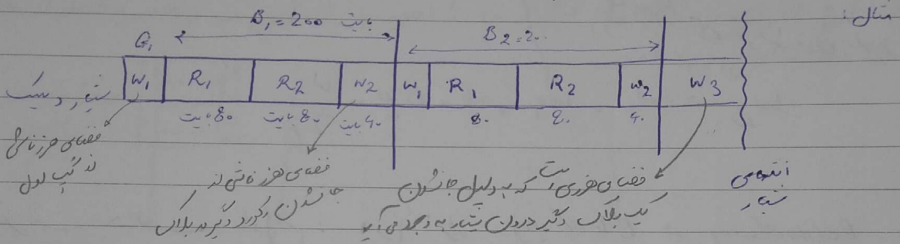 مثال:
B₁ = 200 بایت
B₂ = 20..
G₁
W₁ R₁ R₂ W₂ W₁ R₁ R₂ W₂ W₃
شیار دیسک
80 بایت 80 بایت 40 بایت 80 80 40
فضای هرز ناشی از گپ اول
فضای هرز ناشی از جا نشدن رکورد دیگر در بلاک
فضای هرزی است که به دلیل جا نشدن
یک بلاک دیگر درون شیار به وجود می آید
انتهای
شیار